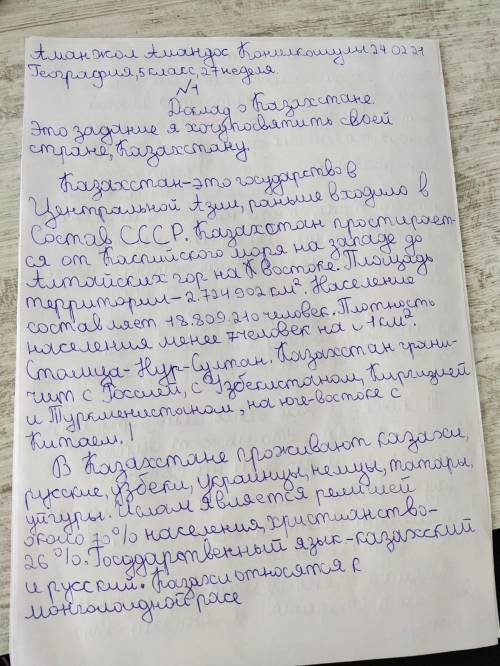 Аманжол Амандос Конилкошулы 24 02 21
География, 5 класс, 27 неделя.
№1
Доклад о Казахстане.
Это задание я хочу посвятить своей
стране, Казахстану.
Казахстан-это государство в
Центральной Азии, раньше входило в
Состав СССР. Казахстан простирает-
ся от Каспийского моря на западе до
Алтайских гор на востоке. Площадь
территории-2.724902 км². Население
составляет 18.809.210 человек. Плотность
населения менее 7 человек на 1 км².
Сталица-Нур-Султан. Казахстан грани-
чит с Россией, с Узбекистаном, Киргизией
и Туркменистаном, на юге-востоке с
Китаем.
В Казахстане проживают казахи,
русские, узбеки, украинцы, немцы, татары,
уйгуры. Ислам является религией
около 70% населения, христианство-
26%. Государственный язык-казахский
и русский. Казахи относятся к
монголоидной расе